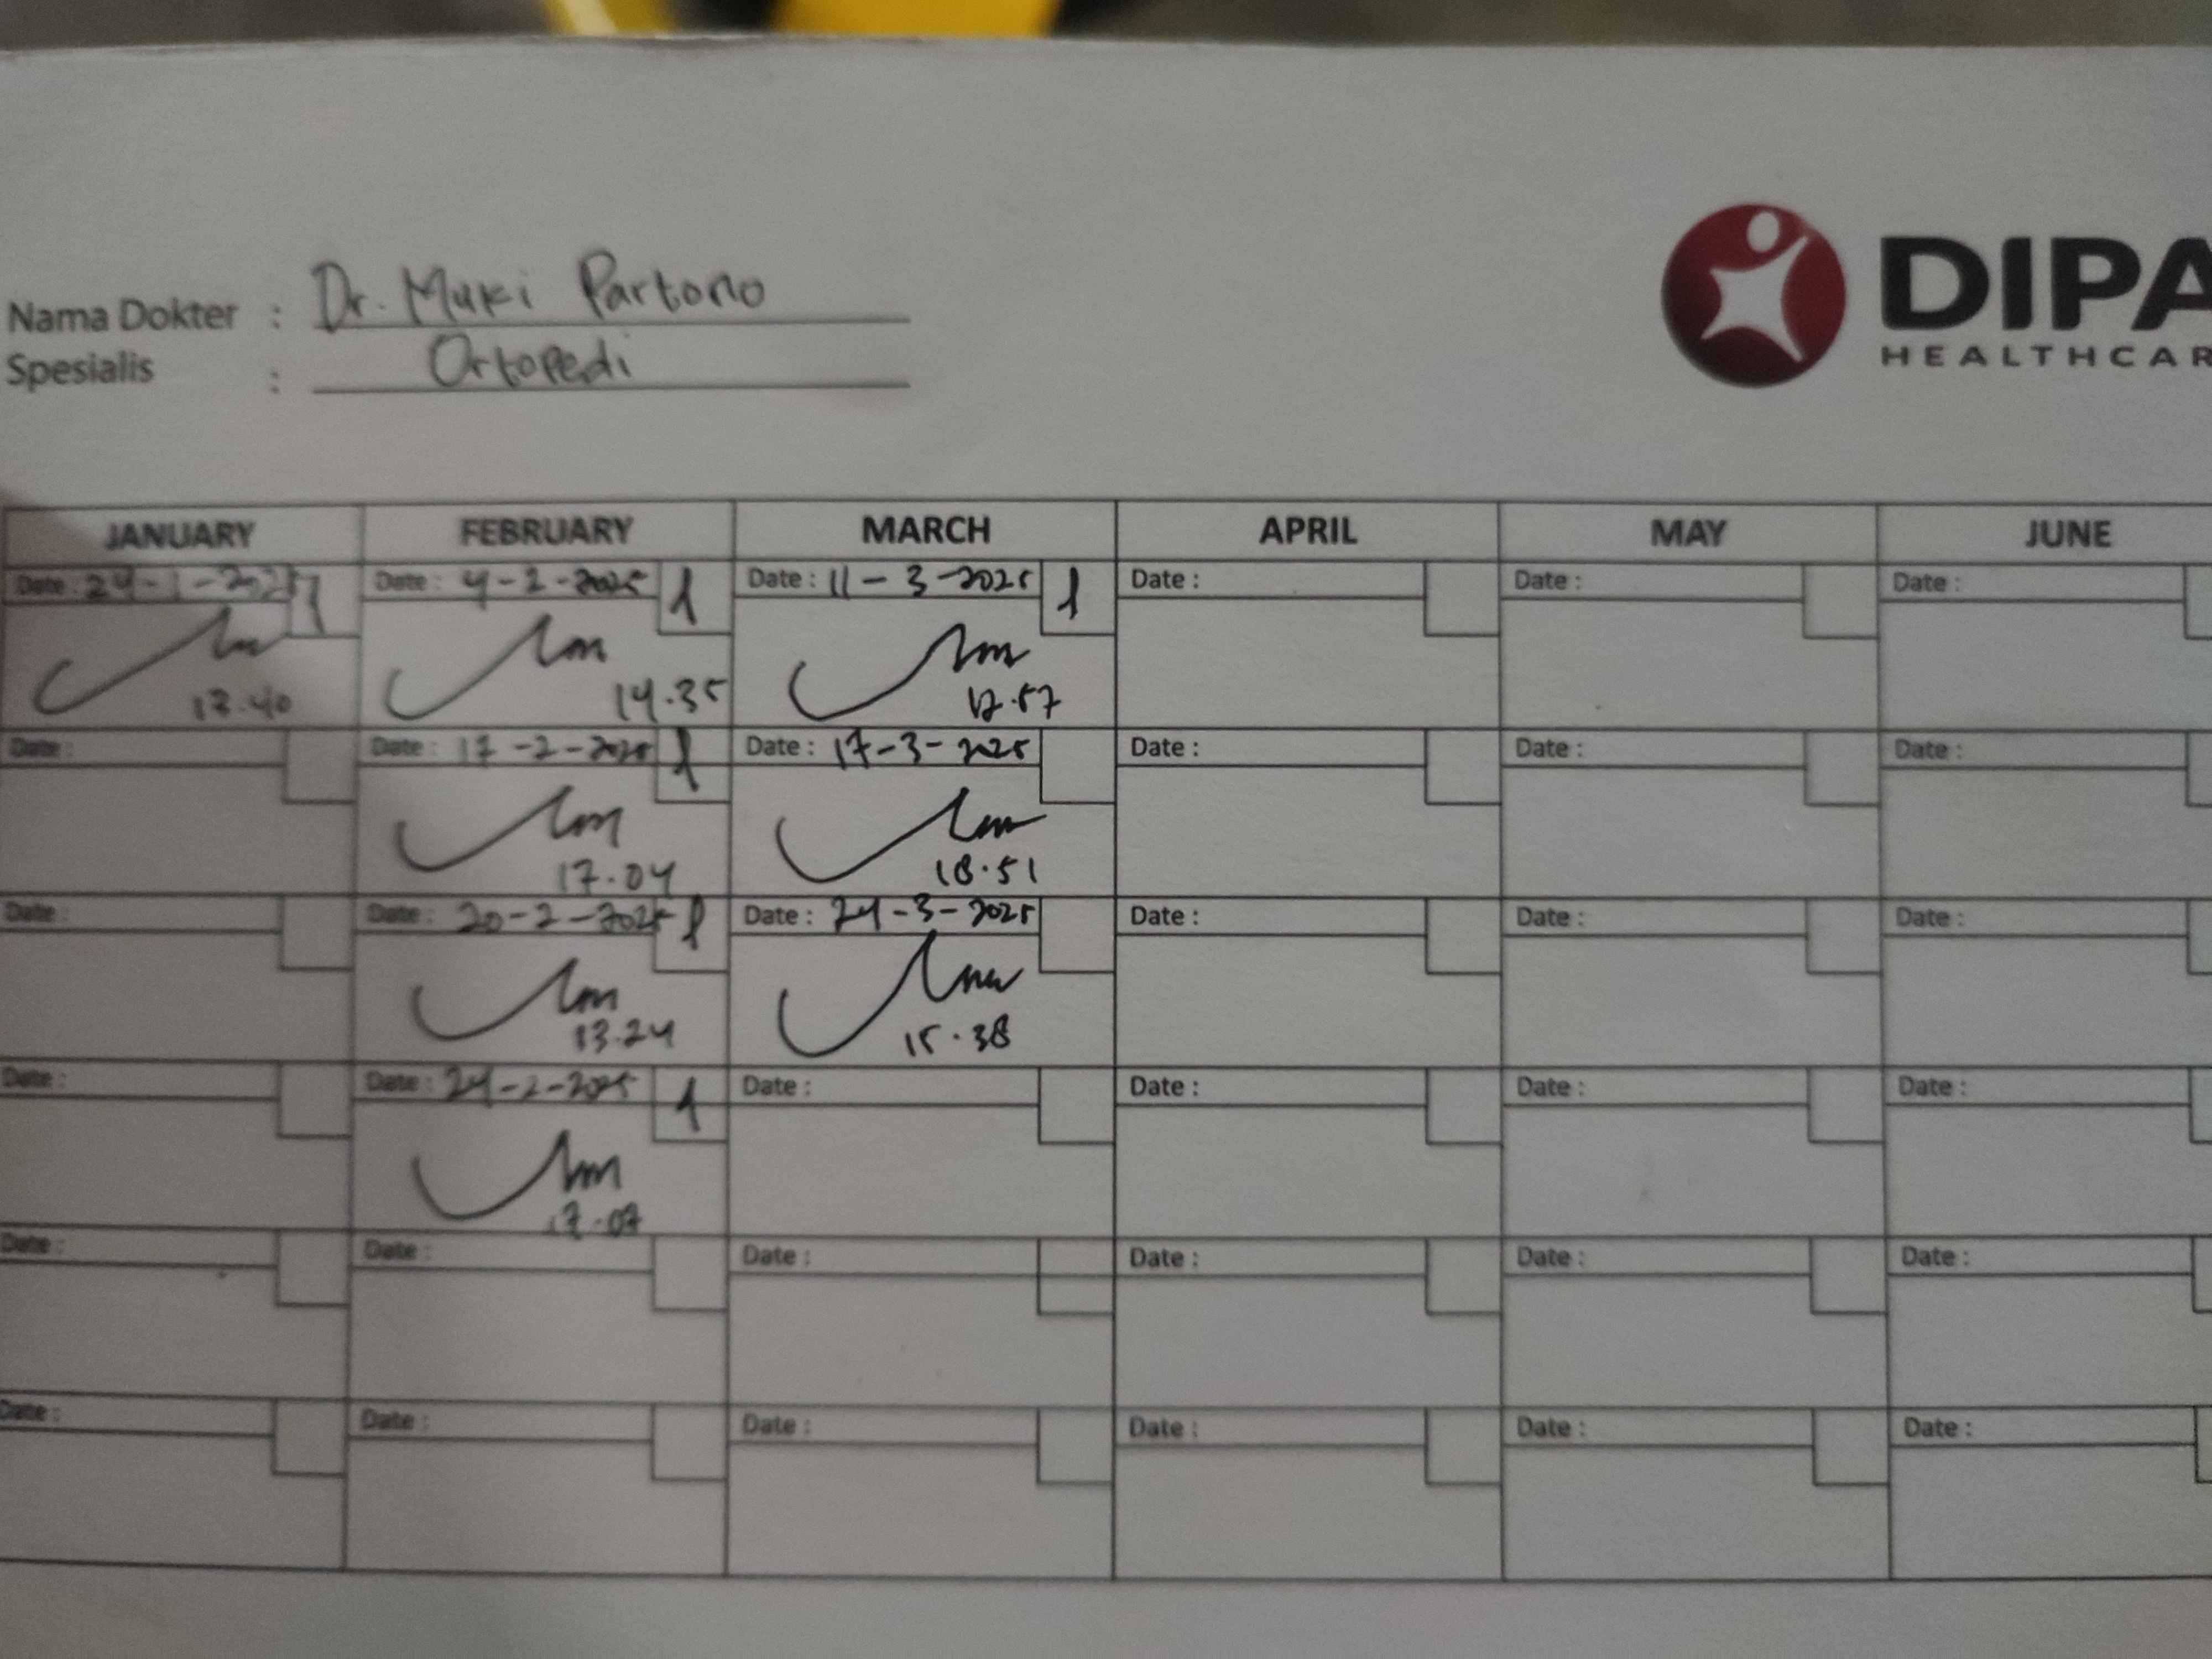 Nama Dokter : Dr. Muki Partono
Spesialis : Ortopedi
DIPA
HEALTHCAR
JANUARY FEBRUARY MARCH APRIL MAY JUNE
Date : 24-1-2025 Date : 4-2-2025 Date : 11-3-2025 Date : Date : Date :
14.35
Date : Date : 17-2-2025 Date : 17-3-2025 Date : Date : Date :
17.04 18.51
Date : Date : 20-2-2025 Date : 24-3-2025 Date : Date : Date :
13.24 15.38
Date : Date : 24-2-2025 Date : Date : Date : Date :
17.07
Date : Date : Date : Date : Date : Date :
Date : Date : Date : Date : Date : Date :